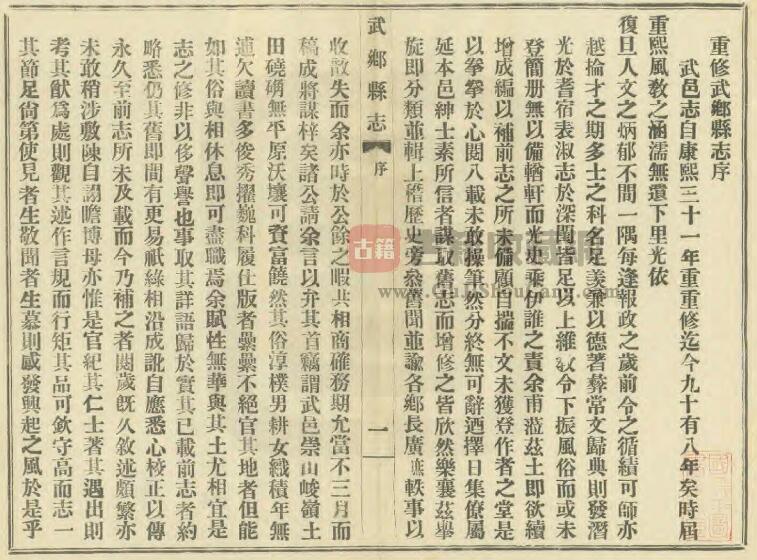 重修武鄉縣志序
武邑志自康熙三十一年重重修迄今九十有八年矣時屆
重熙風敎之涵濡無遺下里光依
復旦人文之炳郁不間一隅每逢報政之歲前令之循績可師亦
越掄才之期多士之科名足羡兼以德著彜常文歸典則發潛
光於耆宿表淑志於深閨皆足以上維敎令下振風俗而或未
登簡册無以備輶軒而光史乘伊誰之責余甫蒞茲土即欲續
增成編以補前志之所未備顧自揣不文未獲登作者之堂是
以拳拳於心閱八載未敢操筆然分終無可辭迺擇日集僚屬
延本邑紳士素所信者謀取舊志而增修之皆欣然樂襄茲舉
旋即分類並輯上稽歷史旁叅舊聞並諭各鄉長廣 軼事以
武鄉縣志 序 一
收散失而余亦時於公餘之暇共相商確務期允當不三月而
稿成將謀梓矣諸公請余言以弁其首竊謂武邑崇山峻嶺土
田磽磡無平原沃壤可資富饒然其俗淳樸男耕女織積年無
逋欠讀書多俊秀擢巍科履仕版者纍纍不絕官其地者但能
如其俗與相休息即可盡職焉余賦性無華與其土尤相宜是
志之修非以侈聲譽也事取其詳語歸於實其已載前志者約
略悉仍其舊即間有更易祇緣相沿成訛自應悉心校正以傳
永久至前志所未及載而今乃補之者閱歲旣久敘述頗繁亦
未敢稍涉敷陳自詡瞻博母亦惟是官紀其仁士著其遇出則
考其猷爲處則觀其述作言規而行矩其品可欽守高而志一
其節足尙第使見者生敬聞者生慕則感發興起之風於是乎
古籍
www.GujiShouCang.com